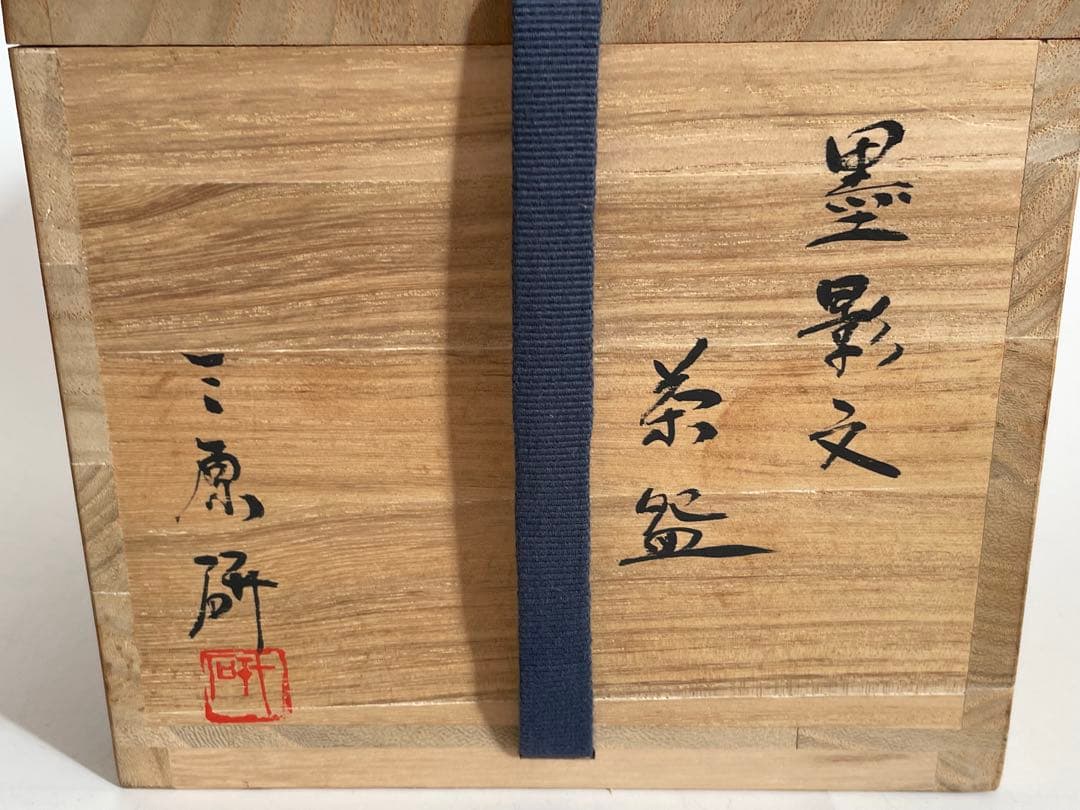 墨影文
茶盌
三原研
研